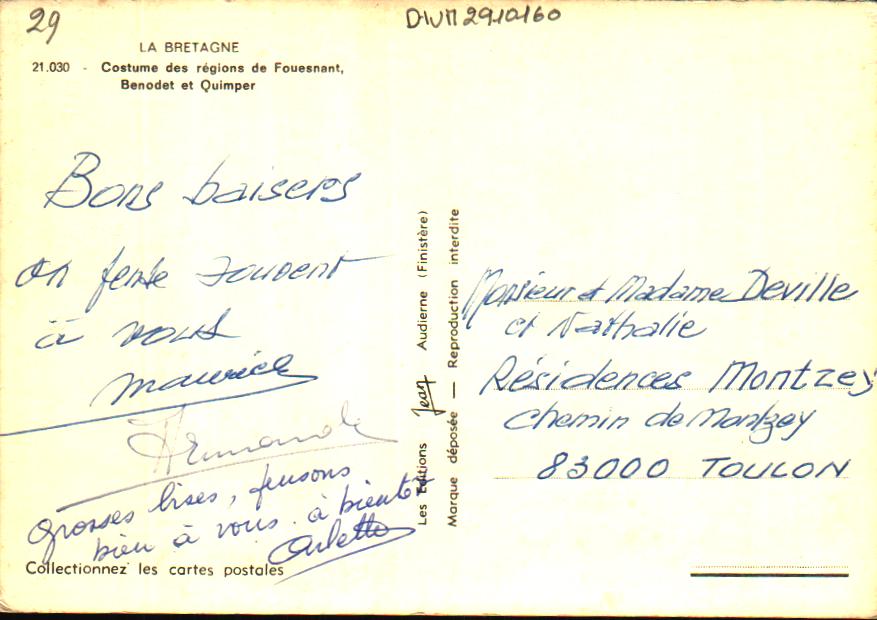 29
DIVR2910160
LA BRETAGNE
21.030 - Costume des régions de Fouesnant,
Benodet et Quimper
Bons baisers
on pense souvent
à vous
Maurice
Armande
grosses bises, pensons
bien à vous. à bientôt
Arlette
Collectionnez les cartes postales
Les Editions Jean Audierne (Finistère)
Marque déposée — Reproduction interdite
Monsieur et Madame Deville
et Nathalie
Résidences Montzey
Chemin de Montzey
83000 TOULON